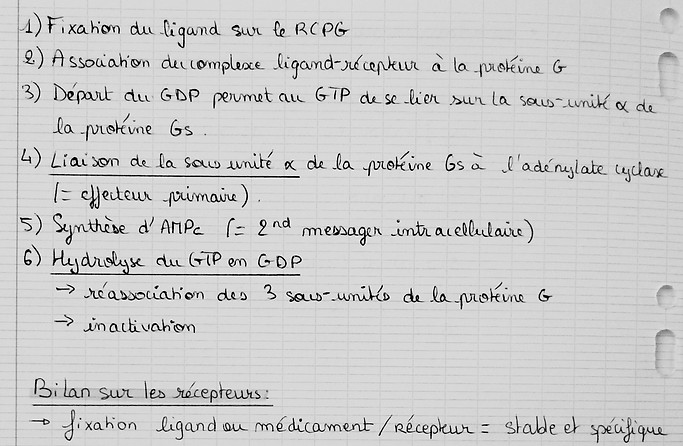 1) Fixation du ligand sur le RCPG
2) Association du complexe ligand-récepteur à la protéine G
3) Départ du GDP permet au GTP de se lier sur la sous-unité α de
la protéine Gs.
4) Liaison de la sous unité α de la protéine Gs à l'adénylate cyclase
(= effecteur primaire).
5) Synthèse d'AMPc (= 2nd messager intracellulaire)
6) Hydrolyse du GTP en GDP
→ réassociation des 3 sous-unités de la protéine G
→ inactivation
Bilan sur les récepteurs:
→ fixation ligand ou médicament / Récepteur = stable et spécifique